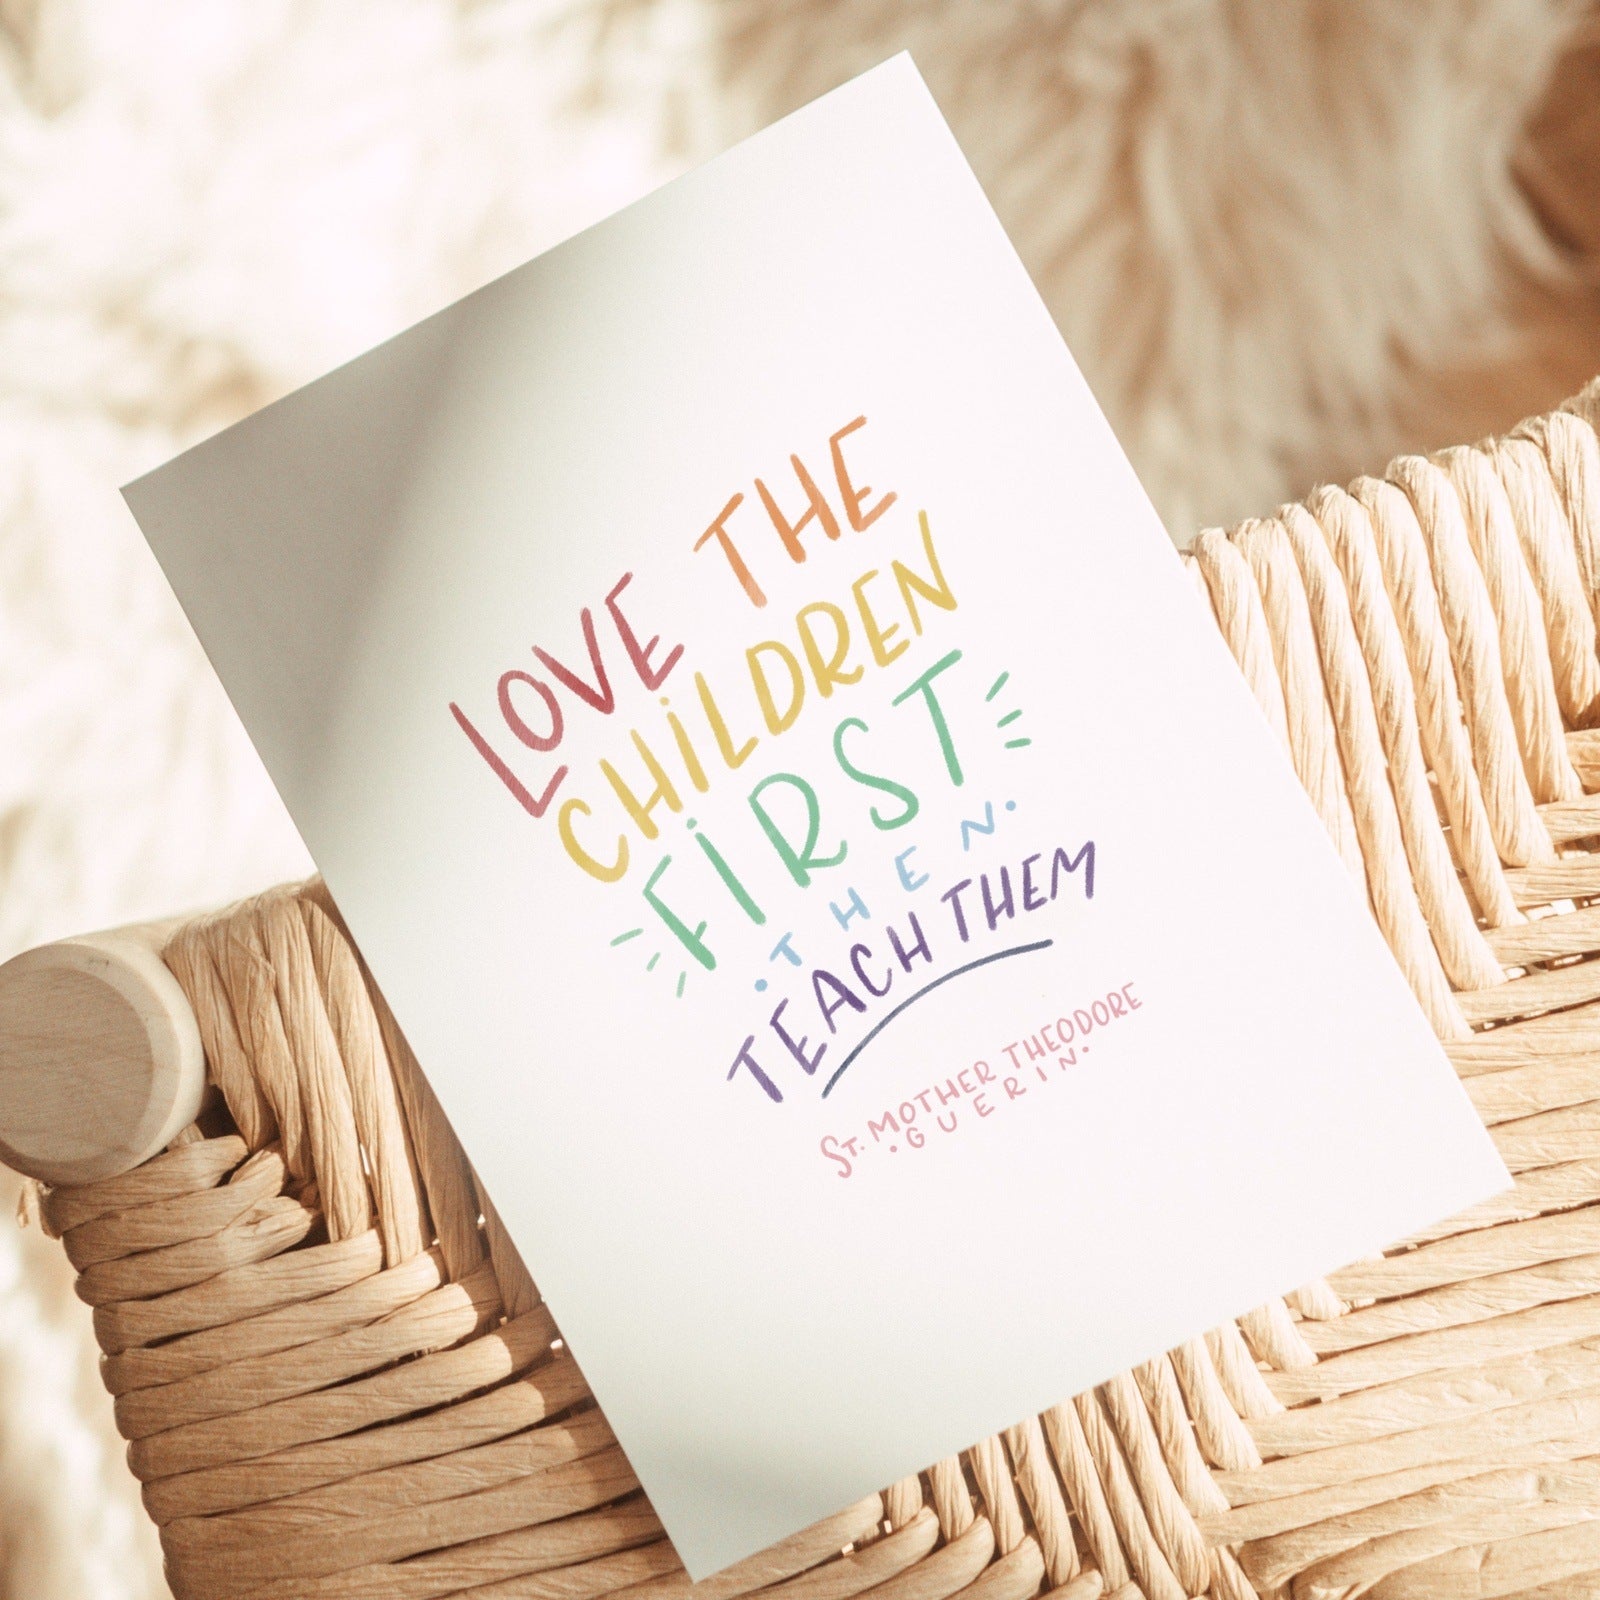 LOVE THE
CHiLDREN
FiRST
·THEN·
TEACH THEM
ST. MOTHER THEODORE
·GUERIN·